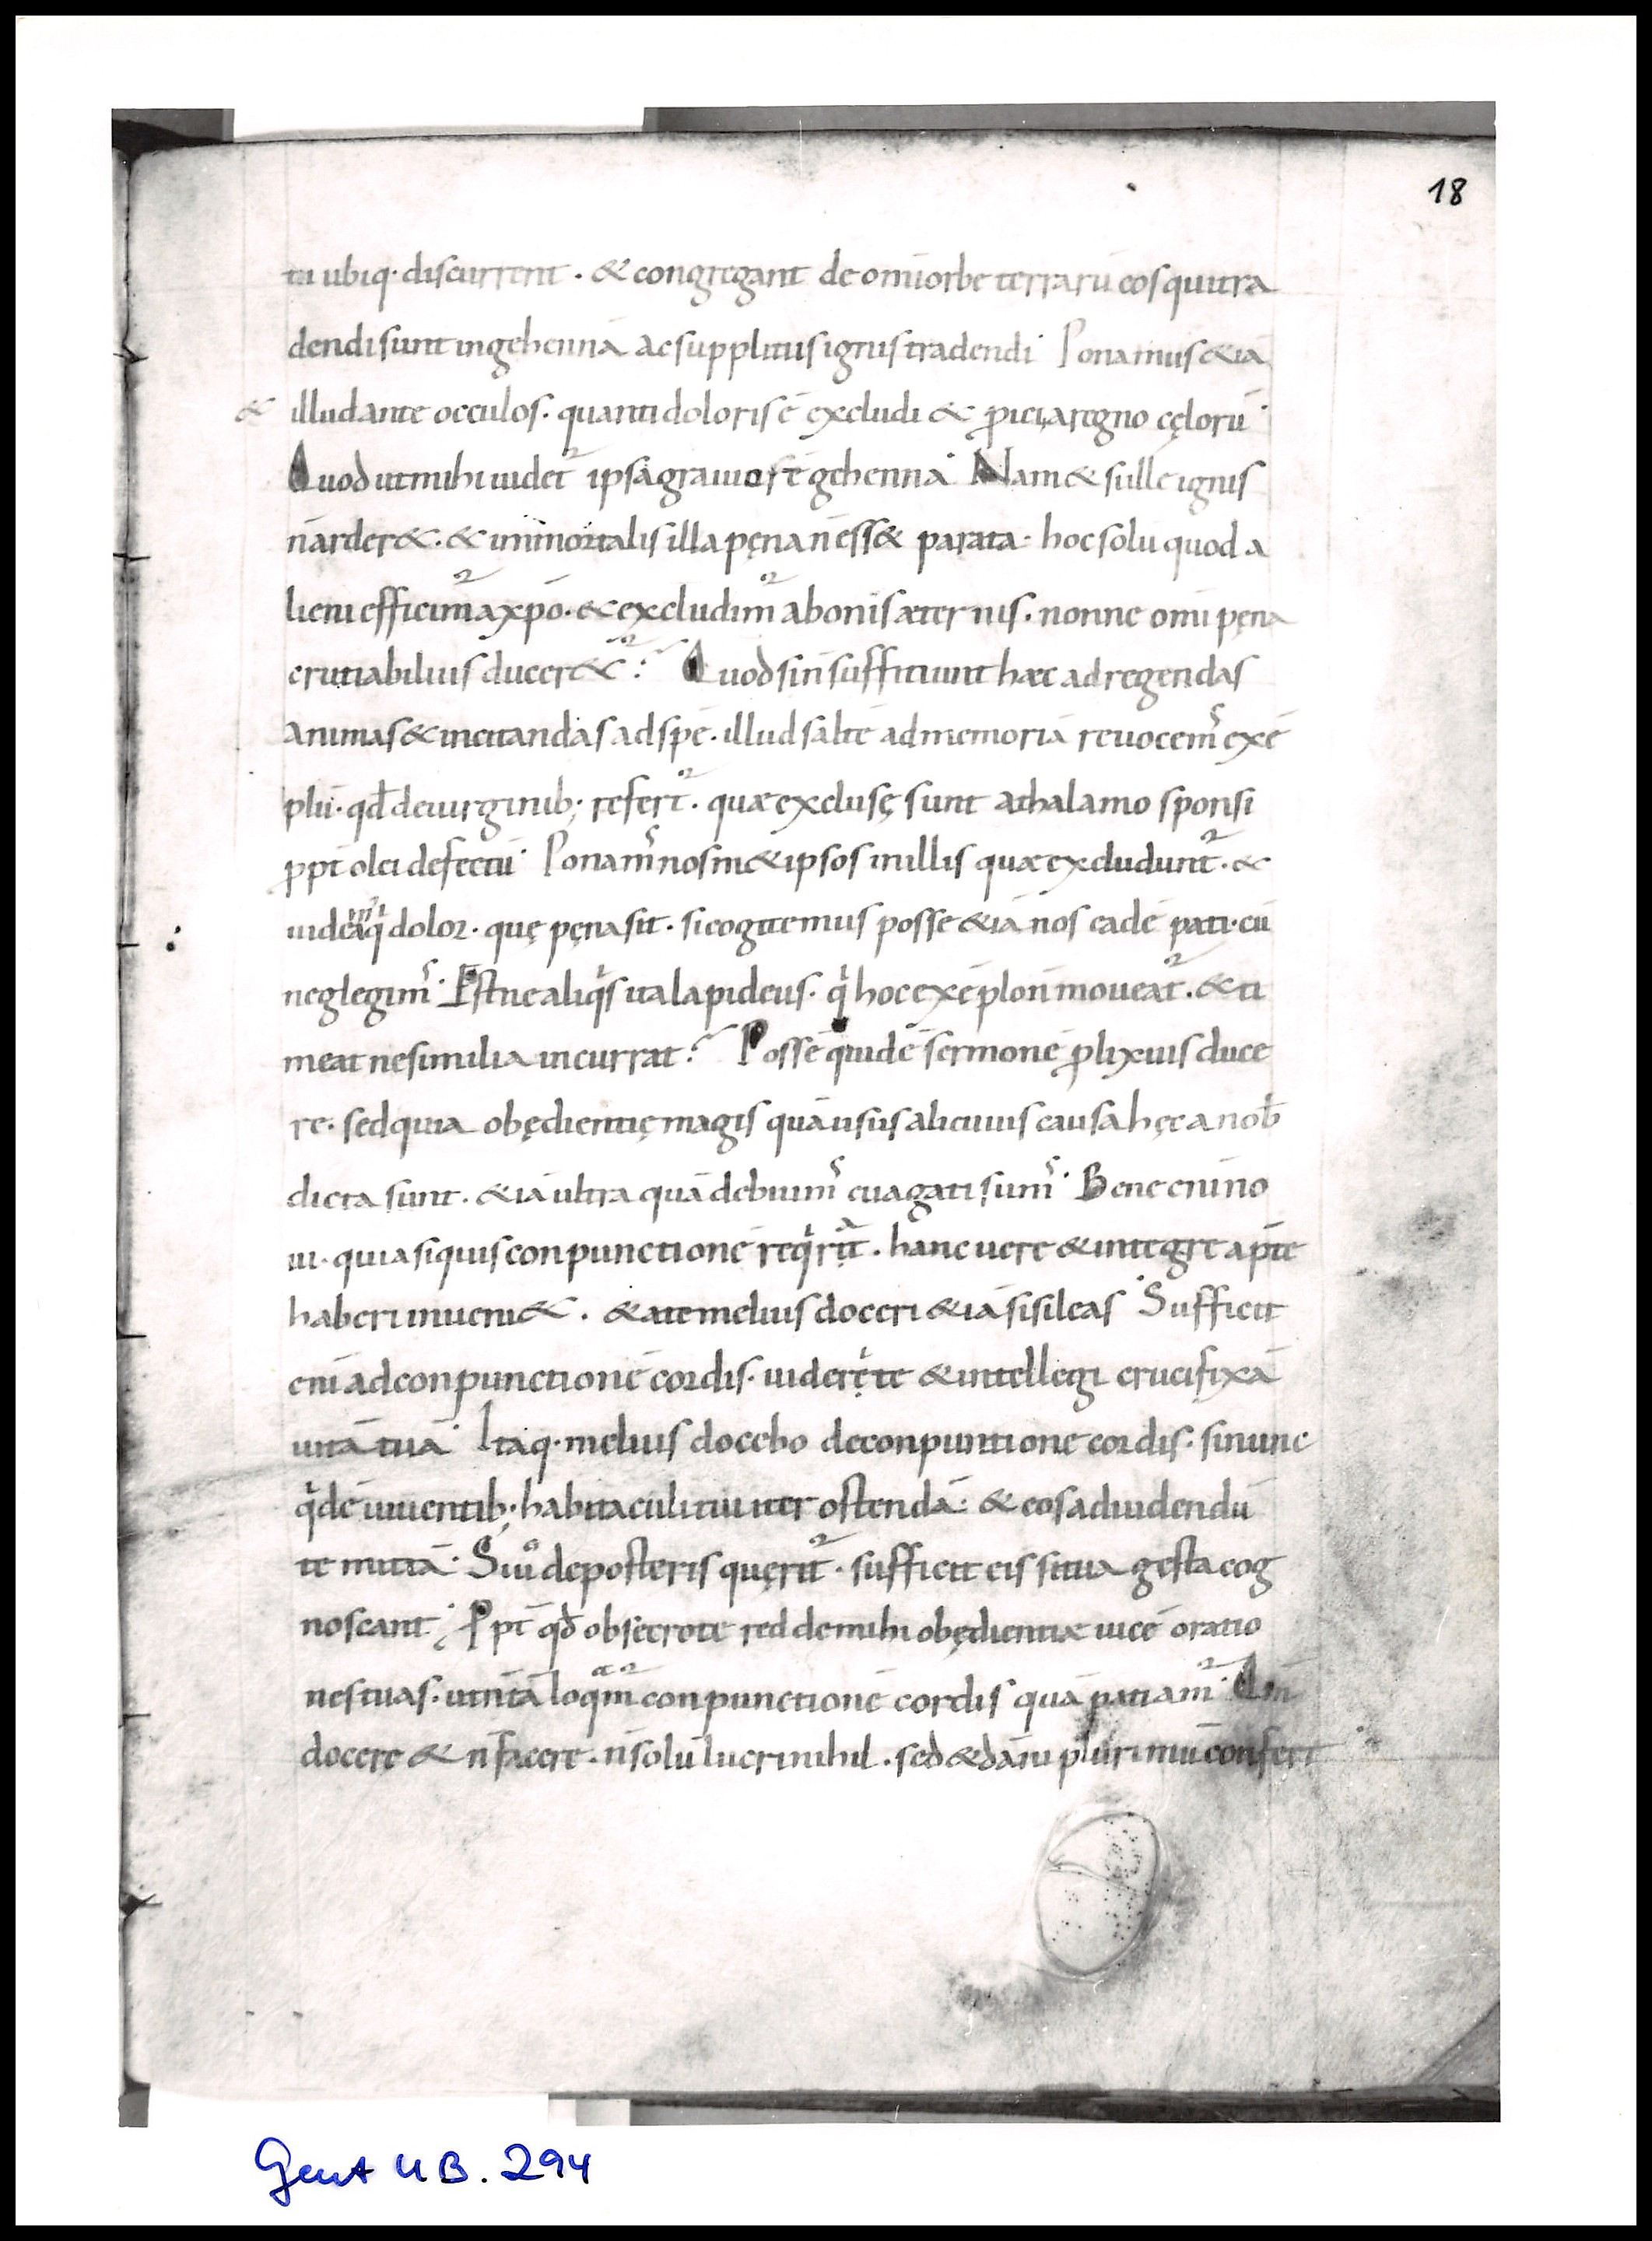 18
ta ubiq· discurrent · & congregant de om̄i orbe terrarū eos qui tra
dendi sunt in gehennā ac suppliciis ignis tradendi· Ponamus &iā
& illud ante occulos· quanti doloris ē excludi & ꝓici a regno cęlorū·
Quod ut mihi uidet᷑ ipsa grauior ē gehenna· Nam & si ille ignis
n̄ arder&· & inmortalis illa pęna n̄ ess& parata· hoc solū quod a
lieni efficim᷑ a xp̄o· & excludim᷑ a bonis æternis· nonne om̄i pęna
crutiabilius ducer&᷑? Quod si n̄ suffitiunt hæc ad regendas
animas & incitandas ad spē· illud saltē ad memoriā reuocem᷒ exē
plū· qd̄ de uirginib; refert᷑· quæ exclusę sunt a thalamo sponsi
ꝓpt̄ olei defectū· Ponam᷒ nosm&ipsos in illis quæ excludunt᷑· &
uideam᷒ qͥ dolor· quę pęna sit· si cogitemus posse &iā nos eadē pati· cū
neglegim᷒· Est ne aliqͥs ita lapideus· qͥ hoc exēplo n̄ moueat᷑· & ti
meat ne similia incurrat? Possē quidē sermonē ꝓlixius duce
re· sed quia obędientię magis quā usus alicuius causa hęc a nob̄
dicta sunt· &iā ultra quā debuim᷒ euagati sum᷒· Bene enī no
ui· quia si quis conpunctionē reqͥrit· hanc uere & integre ap̄ te
haberi inueni&· & a te melius doceri &iā si sileas· Sufficit
enī ad conpunctionē cordis· uidere te & intellegi crucifixā
uitā tuā· Itaq· melius docebo de conpuntione cordis· si nunc
qͥdē uiuentib; habitaculi tui iter ostendā: & eos ad uidendū
te mittā· Si uͦ de posteris quęrit᷑· sufficit eis si tua gesta cog
noscant; Ꝓpt̄ qd̄ obsecro te redde mihi obędientiæ uicē oratio
nes tuas· ut n̄ tā loqͣm᷑ conpunctionē cordis quā patiam᷑· Qm̄
docere & n̄ facere· n̄ solū lucri nihil· sed & dāni plurimū confert
Gent UB. 294